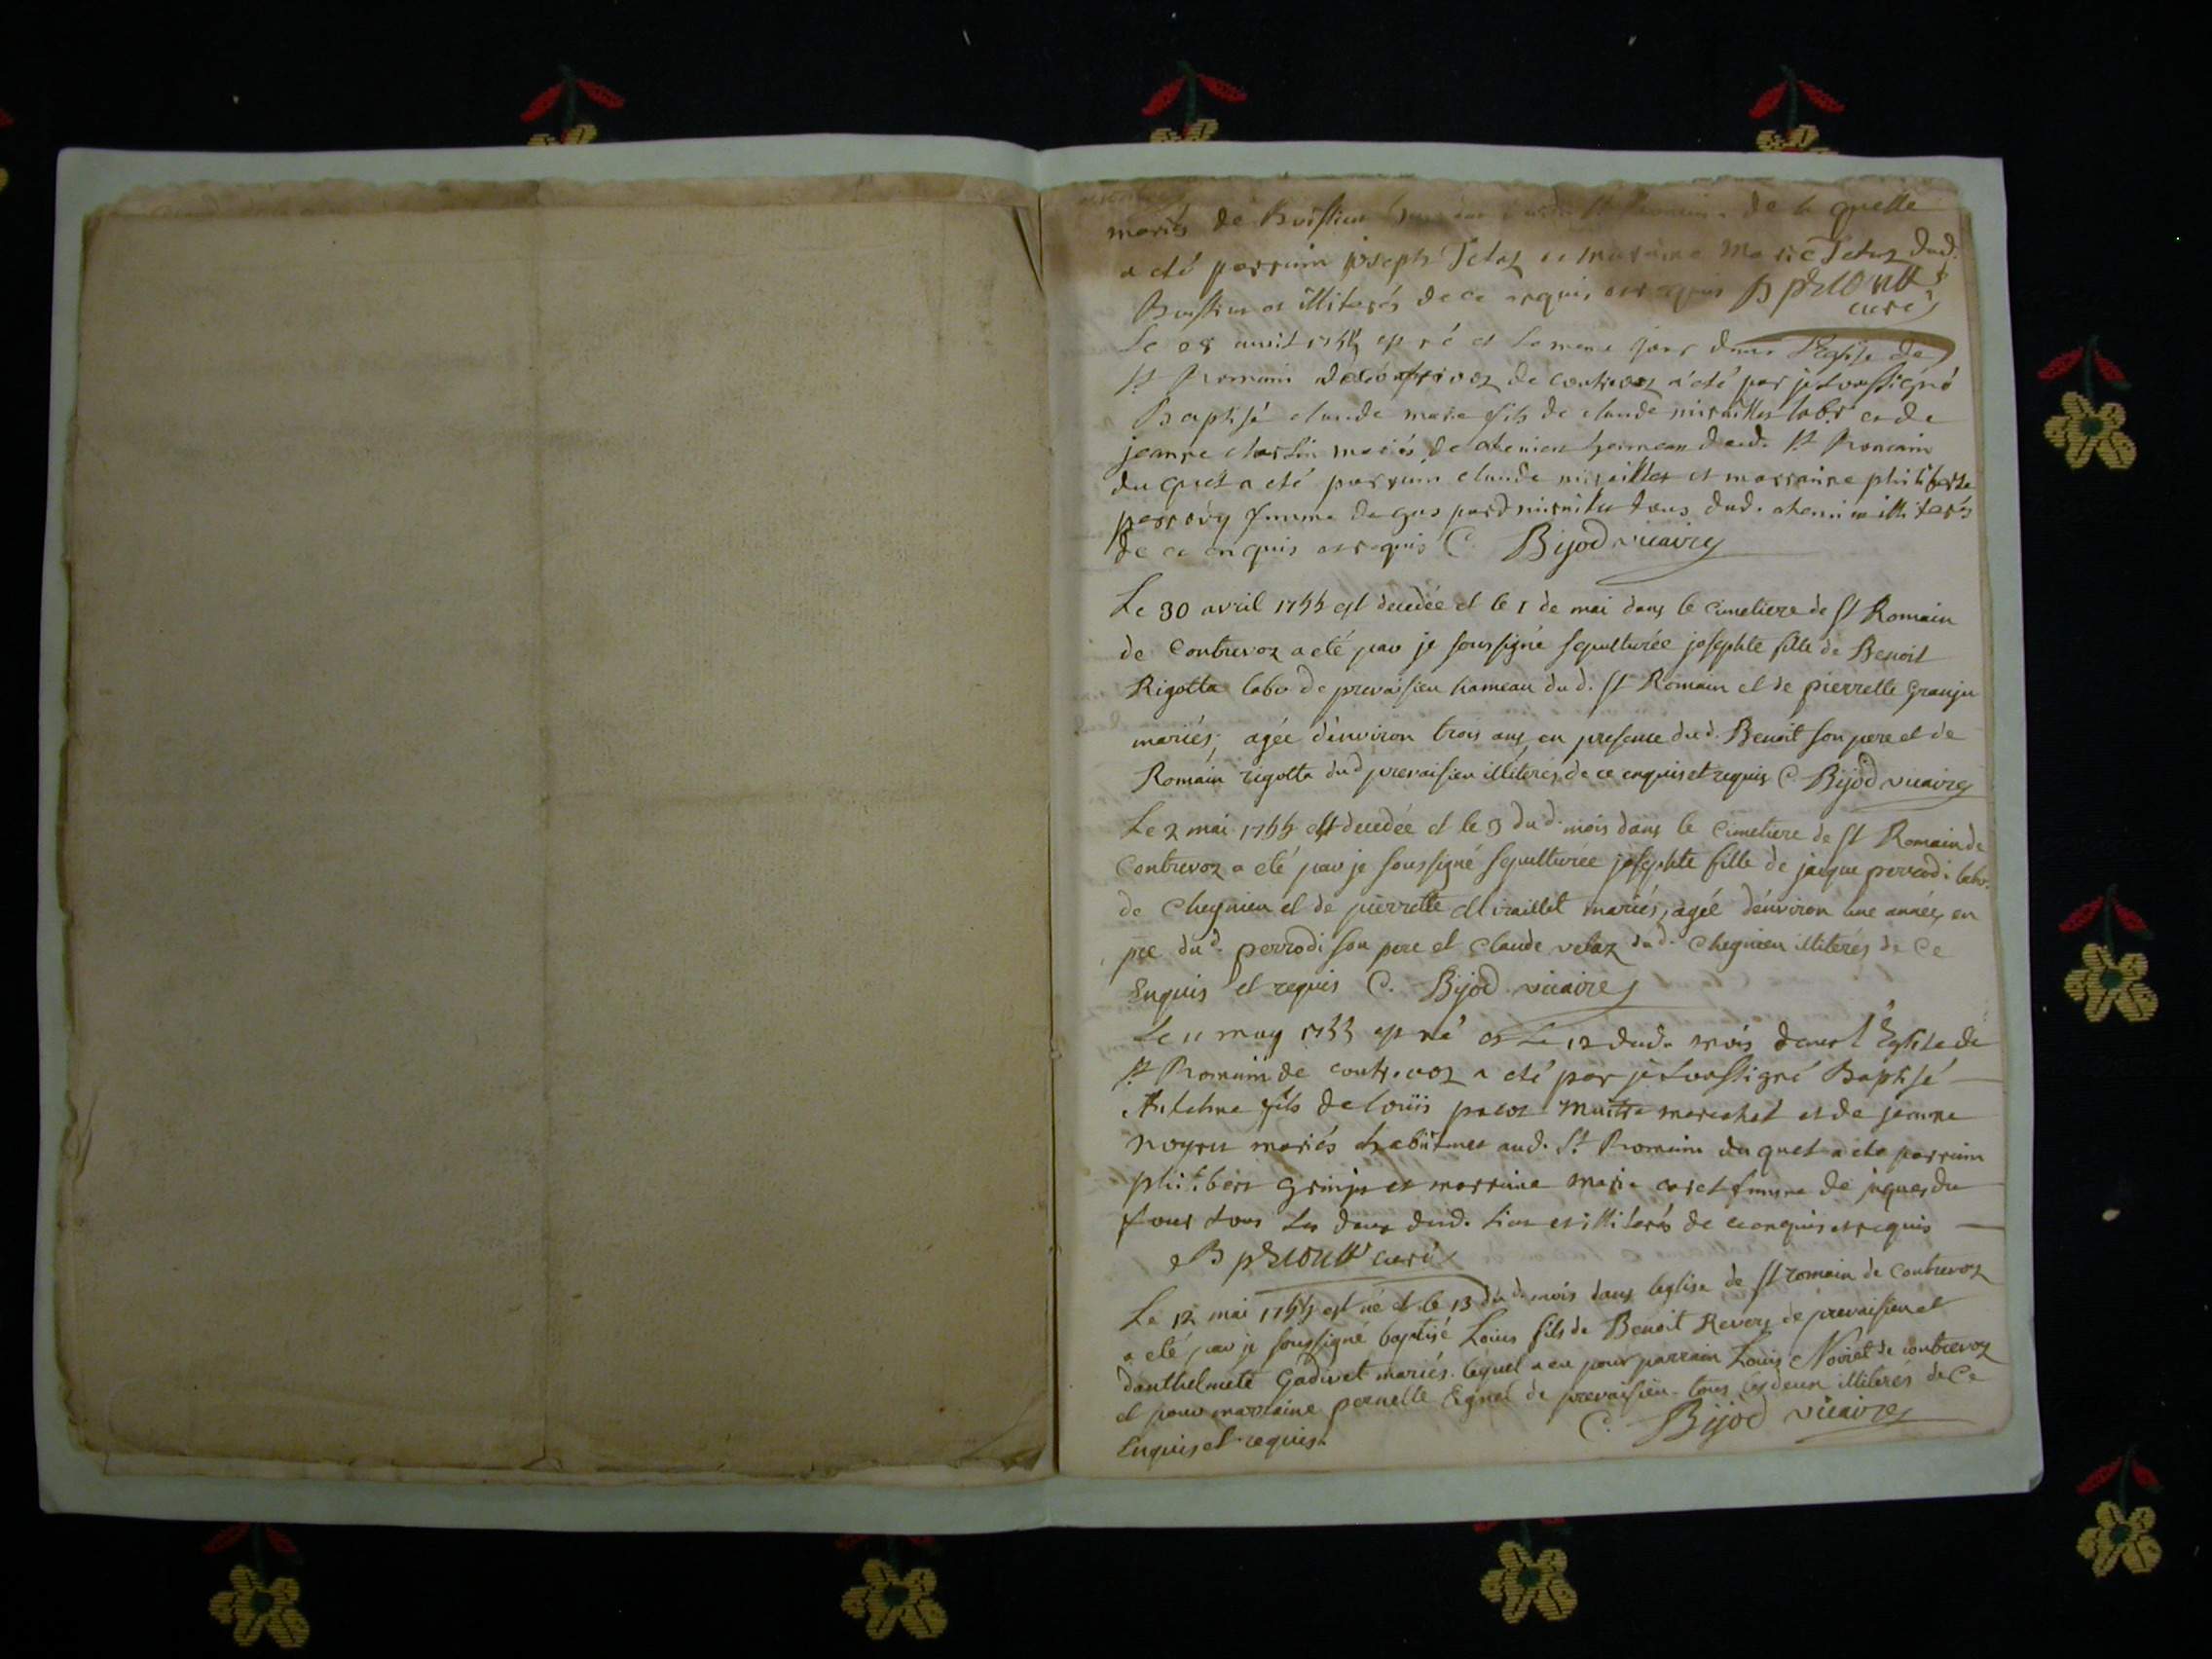 mariés de Boissieu de la quelle
a eté parrain joseph Tetaz et marraine Marie Tetaz dud.
Boissieu illiterés de ce enquis et requis B curé
Le 28 avril 1755 est né et le meme jour dans l'Eglise de
St Romain de contrevoz a été par je soussigné
Baptisé claude marie fils de claude miraillet labr et de
jeanne martin mariés de chenieu hameau dud. St Romain
du quel a eté parrain claude miraillet et marraine philiberte
perrody femme de miraillet tous dud. illiterés
de ce enquis et requis C. Bijod vicaire
Le 30 avril 1755 est decedée et le 1 de mai dans le cimetiere de St Romain
de Contrevoz a eté par je soussigné sepulturée josephte fille de Benoit
Rigotta labr de prevaisieu hameau dud. St Romain et de pierrette Granju
mariés, agée d'environ trois ans, en presence dud. Benoit son pere et de
Romain rigotta dud prevaisieu illiterés de ce enquis et requis C. Bijod vicaire
Le 2 mai 1755 est decedée et le 3 dud. mois dans le cimetiere de St Romain de
Contrevoz a eté par je soussigné sepulturée josephte fille de jacque perrodi labr.
de Chegnieu et de pierrette Miraillet mariés, agée d'environ une année, en
pce dud. perrodi son pere et claude vetaz dud. Chegnieu illiterés de ce
Enquis et requis C. Bijod vicaire
Le 11 may 1755 est né et le 12 dud. mois dans l'Eglise de
St Romain de contrevoz a eté par je soussigné Baptisé
Antelme fils de loüis maitre marechal et de jeanne
mariés habitants aud. St Romain du quel a eté parrain
philibert Grinju et marraine marie femme de jaques du
four tous les deux dud. lieu et illiterés de ce enquis et requis
B curé
Le 12 mai 1755 est né et le 13 dud. mois dans leglise de St romain de Contrevoz
a eté par je soussigné baptisé Louis fils de Benoit Revery de prevaisieu et
danthelmete Gadivet mariés. lequel a eu pour parrain Louis Noiret de contrevoz
et pour marraine pernette de prevaisieu. tous les deux illiterés de ce
Enquis et requis. C. Bijod vicaire